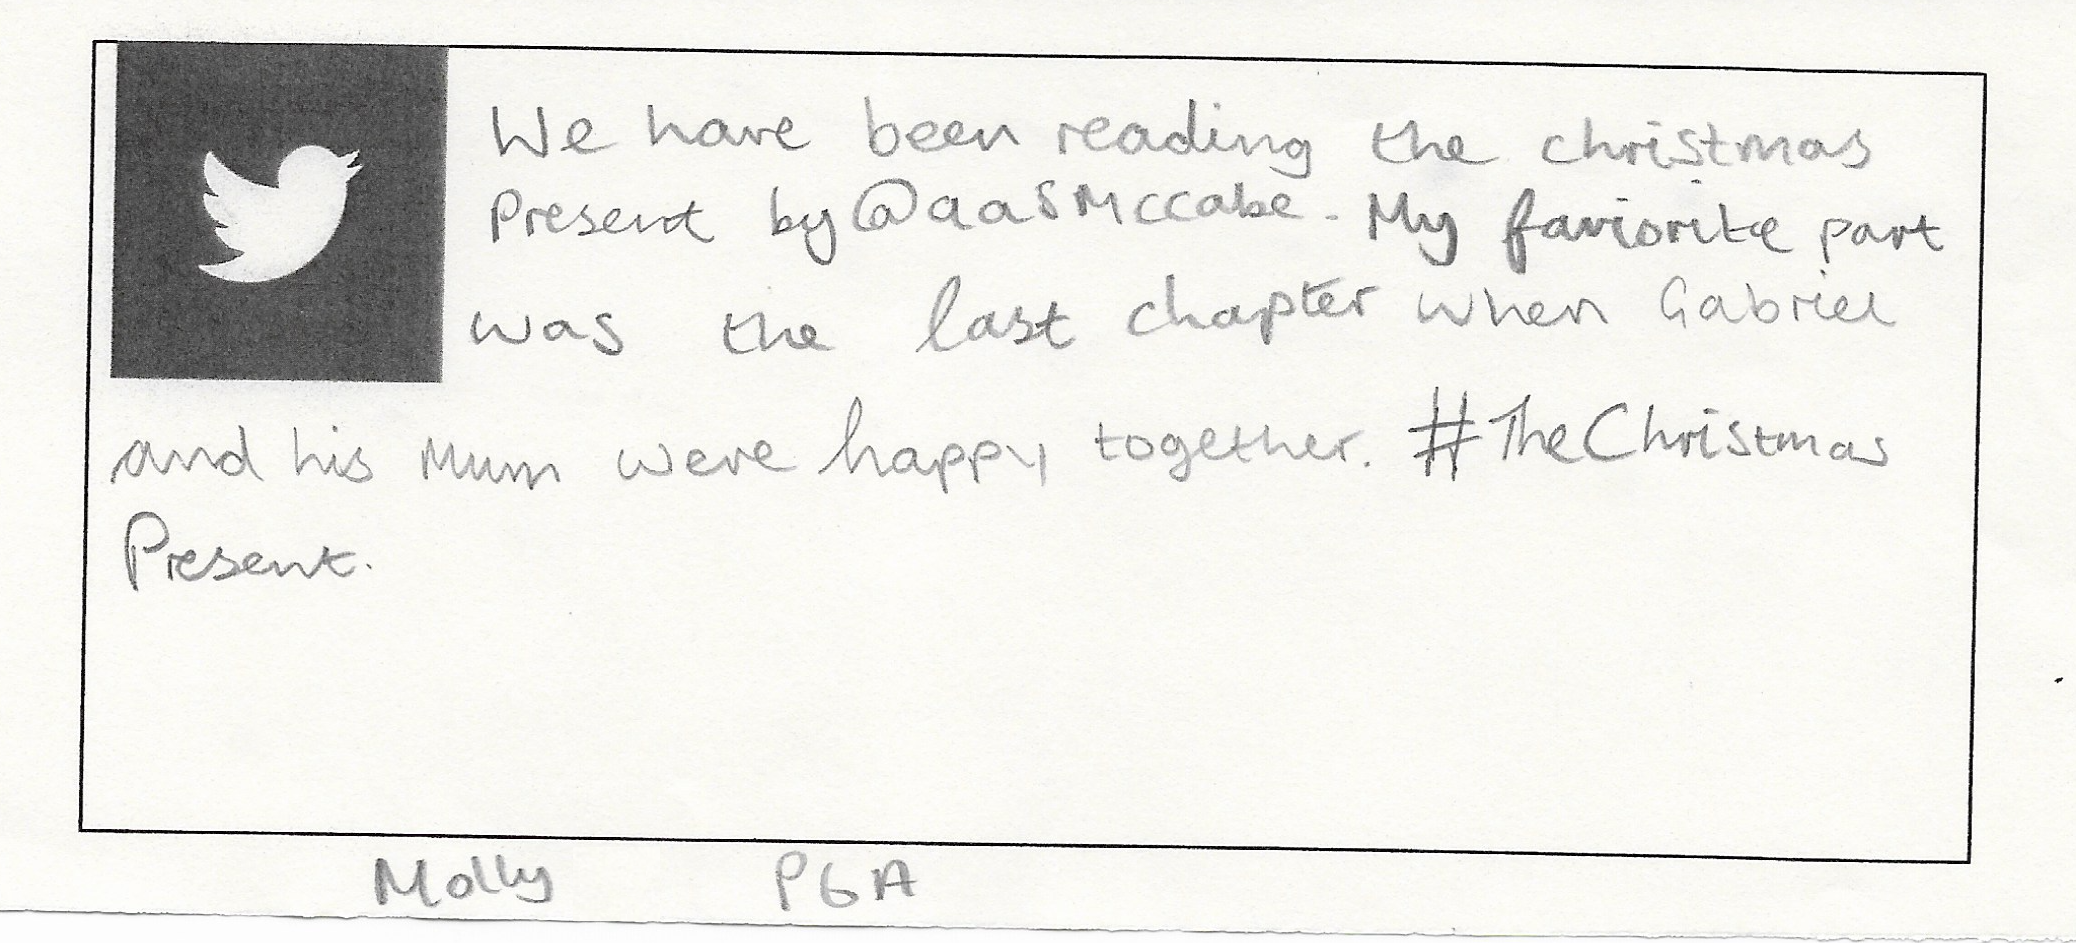 We have been reading the christmas
Present by @aaSMccabe. My faviorite part
was the last chapter when Gabriel
and his Mum were happy together. #TheChristmas
Present.
Molly P6A